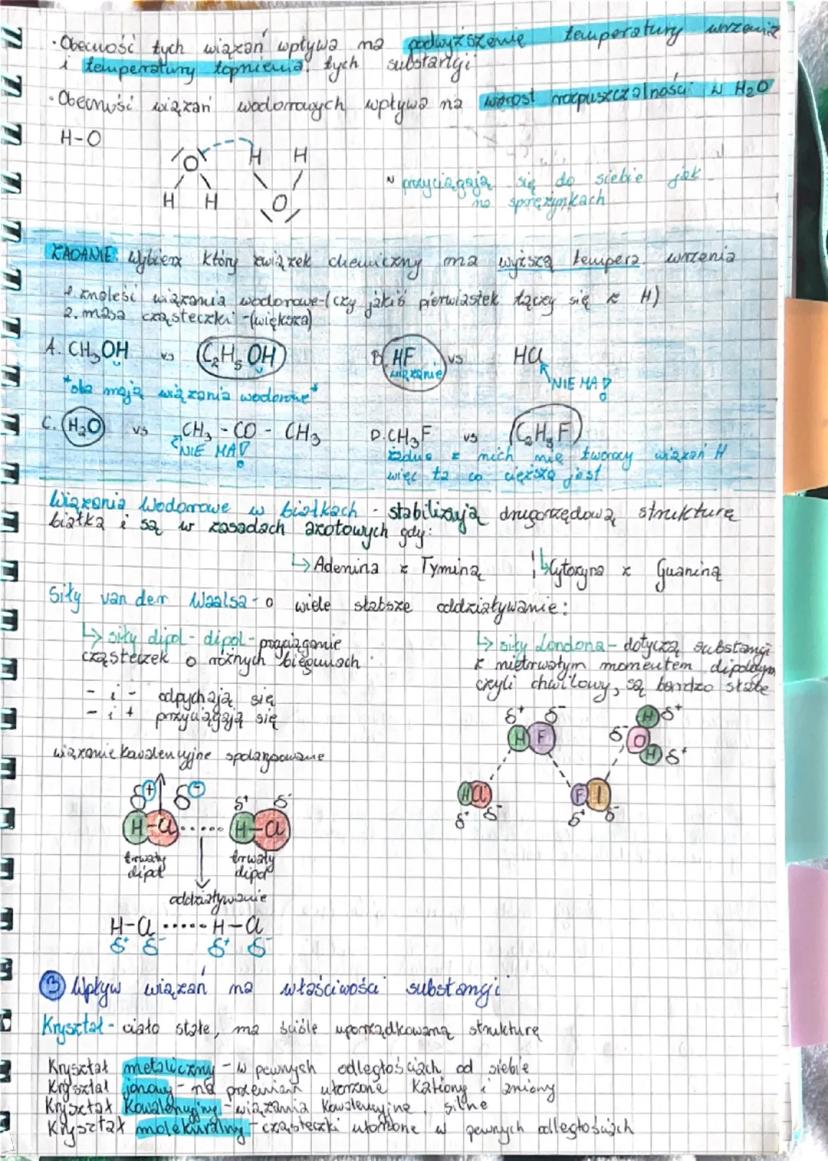 • Obecność tych wiązań wpływa na podwyższenie temperatury wrzenia
i temperatury topnienia tych substancji
• Obecność wiązań wodorowych wpływa na wzrost rozpuszczalności w H2O
H-O
O H H
H H O
~ przyciągają się do siebie jak
na sprężynkach
ZADANIE: Wybierz który związek chemiczny ma wyższą tempera. wrzenia
1. znaleść wiązania wodorowe-(czy jakiś pierwiastek łączy się z H)
2. masa cząsteczki -(większa)
A. CH3OH vs C2H5OH B. HF vs HCl
wiązanie NIE MA!
*oba mają wiązania wodorowe*
C. H2O vs CH3 - CO - CH3 D. CH3F vs C2H5F
NIE MA!
żadne z nich nie tworzy wiązań H
więc ta co cięższa jest
Wiązania Wodorowe w białkach - stabilizują drugorzędową strukturę
białka i są w zasadach azotowych gdy:
↳ Adenina z Tyminą ↳ Cytozyna z Guaniną
Siły van der Waalsa - o wiele słabsze oddziaływanie:
↳ siły dipol - dipol - przyciąganie
cząsteczek o różnych biegunach.
- i - odpychają się
- i + przyciągają się
↳ siły Londona - dotyczą substancji
z nietrwałym momentem dipolowym
czyli chwilowy, są bardzo słabe
wiązanie kowalencyjne spolaryzowane
δ+ δ- δ+ δ-
H-Cl ..... H-Cl
trwały trwały
dipol dipol
oddziaływanie
H-Cl ..... H-Cl
δ+ δ- δ+ δ-
δ+ δ- H δ+
H F δ- O
H δ+
H Cl F I
δ+ δ- δ+ δ-
③ Wpływ wiązań na właściwości substancji
Kryształ - ciało stałe, ma ściśle uporządkowaną strukturę
Kryształ metaliczny - w pewnych odległościach od siebie
Kryształ jonowy - na przemian ułożone kationy i aniony
Kryształ Kowalencyjny - wiązania kowalencyjne, silne
Kryształ molekularny - cząsteczki ułożone w pewnych odległościach